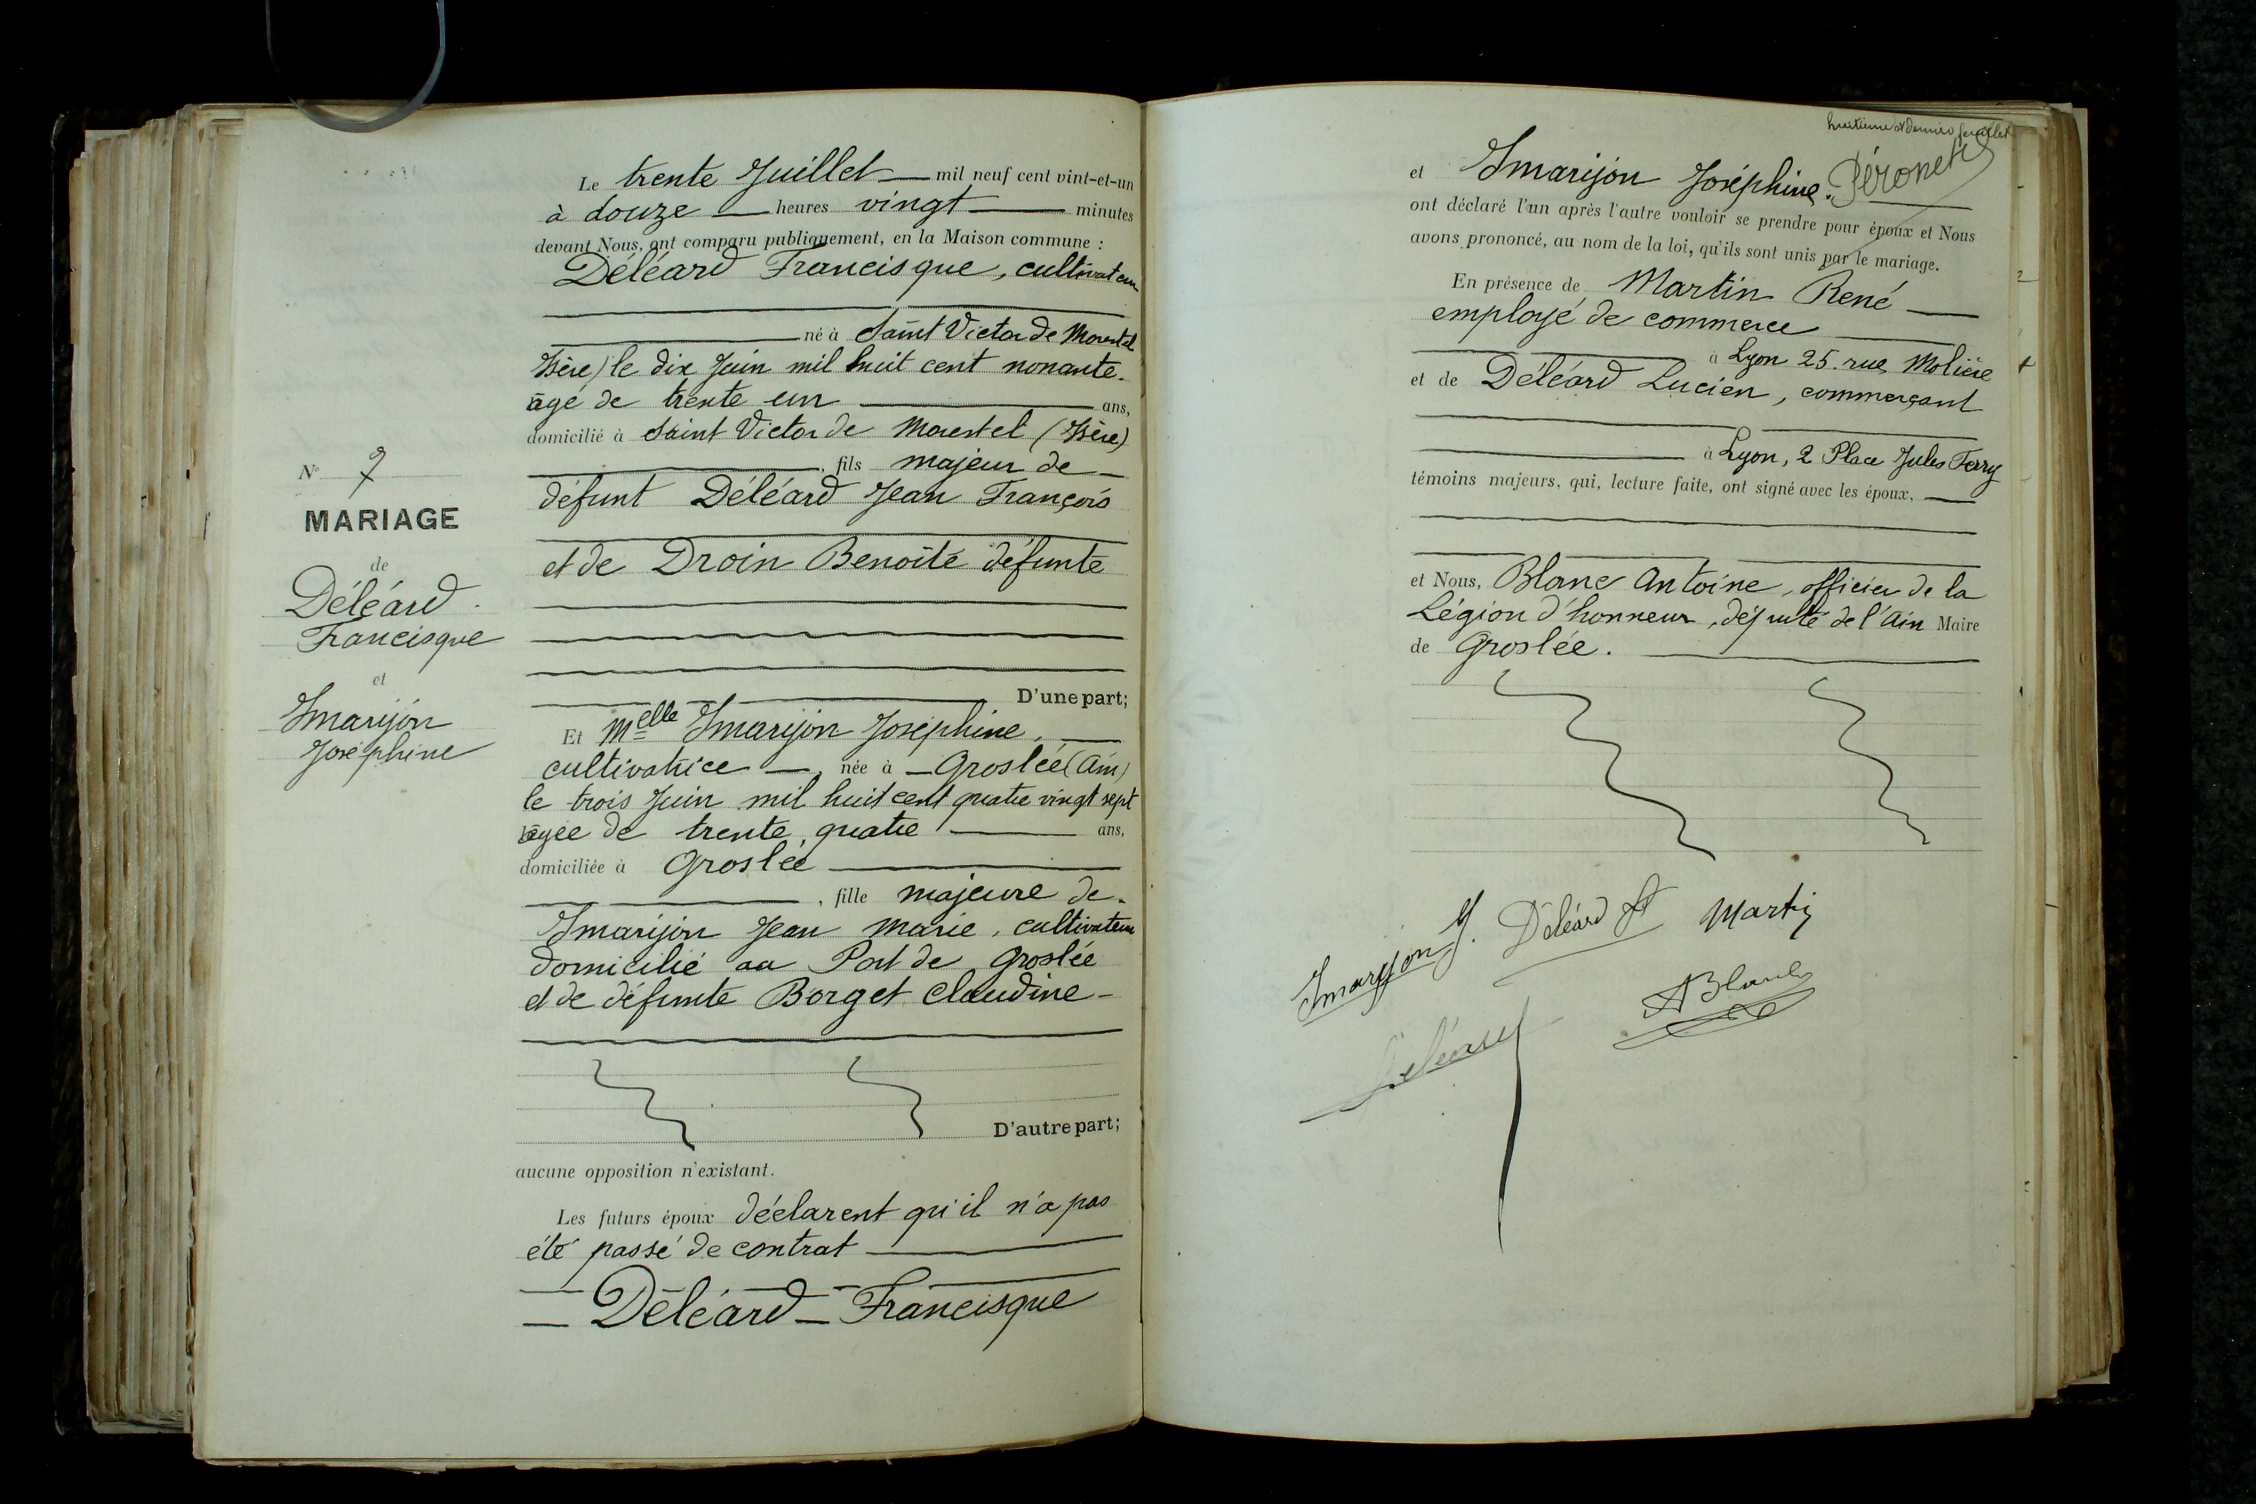 N° 7
MARIAGE
de
Déléard
Francisque
et
Smarijon
Joséphine
Le trente Juillet mil neuf cent vint-et-un
à douze heures vingt minutes
devant Nous, ont comparu publiquement, en la Maison commune :
Déléard Francisque, cultivateur
né à Saint Victor de Morestel
Isère) le dix Juin mil huit cent nonante.
âgé de trente un ans,
domicilié à Saint Victor de Morestel (Isère)
, fils majeur de
défunt Déléard Jean François
et de Droin Benoîte défunte
D'une part;
Et Melle Smarijon Joséphine,
cultivatrice , née à Groslée (Ain)
le trois Juin mil huit cent quatre vingt sept
âgée de trente quatre ans,
domiciliée à Groslée
, fille majeure de
Smarijon Jean Marie, cultivateur
domicilié au Port de Groslée
et de défunte Borget Claudine
D'autre part;
aucune opposition n'existant.
Les futurs époux déclarent qu'il n'a pas
été passé de contrat
Déléard Francisque
huitième et dernier feuillet
Péronet
et Smarijon Joséphine.
ont déclaré l'un après l'autre vouloir se prendre pour époux et Nous
avons prononcé, au nom de la loi, qu'ils sont unis par le mariage.
En présence de Martin René
employé de commerce
à Lyon 25. rue Molière
et de Déléard Lucien, commerçant
à Lyon, 2 Place Jules Ferry
témoins majeurs, qui, lecture faite, ont signé avec les époux,
et Nous, Blanc Antoine, officier de la
Légion d'honneur, député de l'Ain Maire
de Groslée.
Smarijon J. Déléard Martin
A Blanc
Déléard